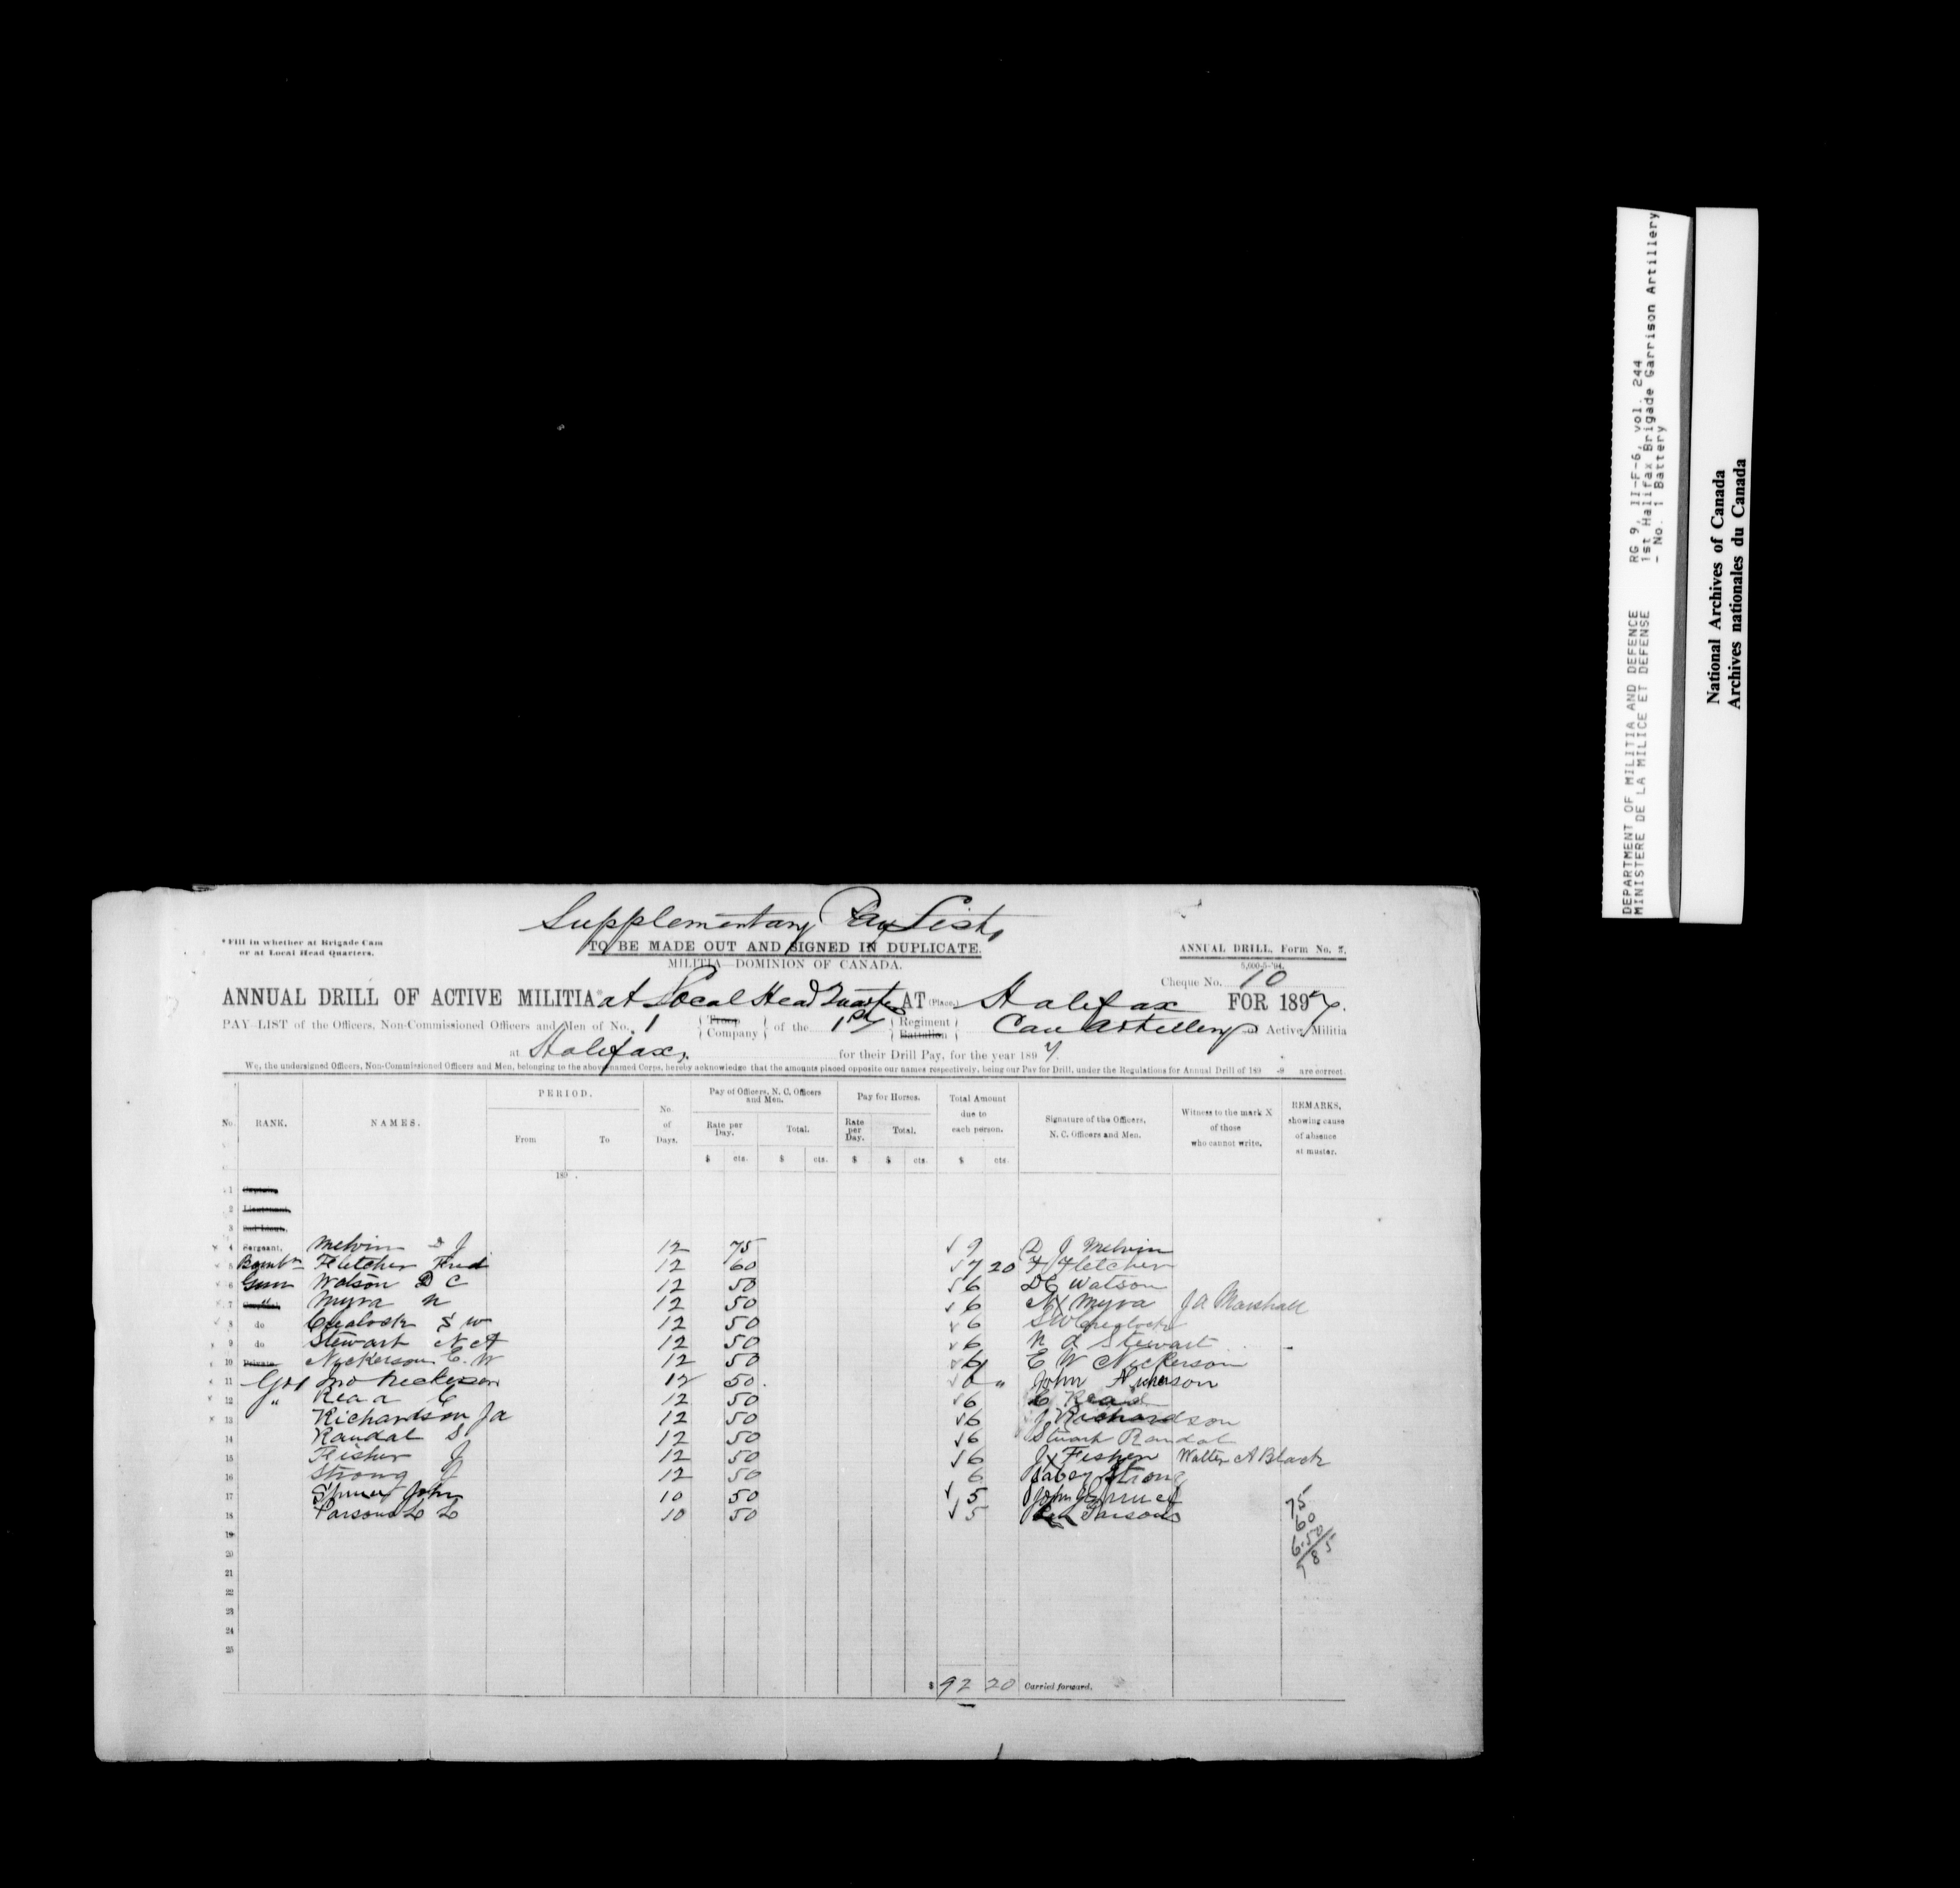 Supplementary Pay List,
*Fill in whether at Brigade Cam
or at Local Head Quarters.
TO BE MADE OUT AND SIGNED IN DUPLICATE.
MILITIA—DOMINION OF CANADA.
ANNUAL DRILL, Form No.
5,000-5-'94.
Cheque No. 10
ANNUAL DRILL OF ACTIVE MILITIA* at Local Head Quarters AT (Place.) Halifax FOR 1897.
PAY LIST of the Officers, Non-Commissioned Officers and Men of No. 1 { Troop Company } of the 1st { Regiment Battalion } Can Artillery of Active Militia
at Halifax, for their Drill Pay, for the year 1897.
We, the undersigned Officers, Non-Commissioned Officers and Men, belonging to the above named Corps, hereby acknowledge that the amounts placed opposite our names respectively, being our Pay for Drill, under the Regulations for Annual Drill of 189 -9 are correct.
No. RANK. NAMES. PERIOD. From To No. of Days. Pay of Officers, N. C. Officers and Men. Rate per Day. $ cts. Total. $ cts. Pay for Horses. Rate per Day. $ Total. $ cts. Total Amount due to each person. $ cts. Signature of the Officers, N. C. Officers and Men. Witness to the mark X of those who cannot write. REMARKS, showing cause of absence at muster.
189 .
1 Captain
2 Lieutenant,
3 2nd Lieut.
4 Sergeant, Melvin J 12 75 9 D J Melvin
5 Bombr Fletcher Fred 12 60 7 20 F Fletcher
6 Gunn Watson D C 12 50 6 DC Watson
7 " Myra N 12 50 6 N X Myra J A Marshall
8 do S W 12 50 6 S W
9 do Stewart N A 12 50 6 N A Stewart
10 Private Nickerson E. W 12 50 6 E W Nickerson
11 Gnr Jno Nickerson 12 50. 6 " John Nickerson
12 " Read C 12 50 6 C Read
13 Richardson Ja 12 50 6 J Richardson
14 Randal S 12 50 6 Stuart Randal
15 Fisher J 12 50 6 J X Fisher Walter A Black
16 Strong J 12 50 6 Strong
17 Spruce John 10 50 5 John Spruce
18 Parsons L L 10 50 5 Parsons
19
20
21
22
23
24
25
75
60
6.50
7 8 5
$ 92 20 Carried forward.
DEPARTMENT OF MILITIA AND DEFENCE
MINISTERE DE LA MILICE ET DEFENSE
RG 9, II-F-6, vol. 244
1st Halifax Brigade Garrison Artillery
- No. 1 Battery
National Archives of Canada
Archives nationales du Canada